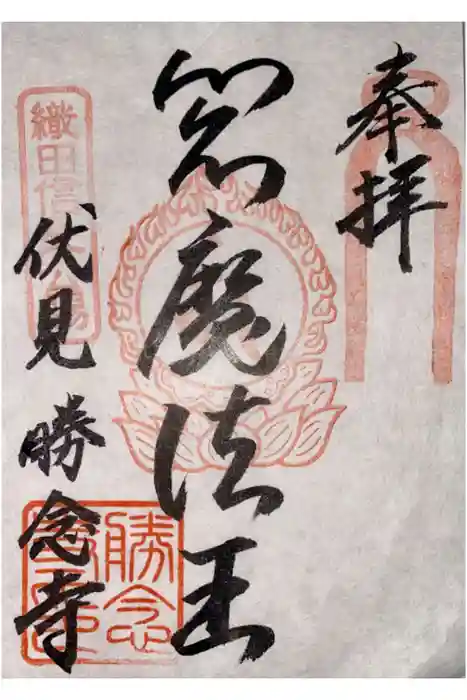 奉拝
閻魔法王
織田信長公賜
伏見 勝念寺
勝念